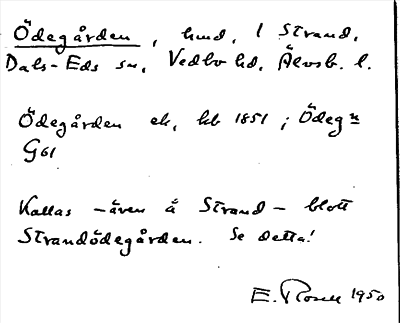 Ödegården, hmd, l Strand,
Dals-Eds sn, Vedbo hd, Älvsb. l.
Ödegården ek, hb 1851; Ödegn
G61
Kallas - även å Strand - blott
Strandödegården. Se detta!
E. Rosell 1950